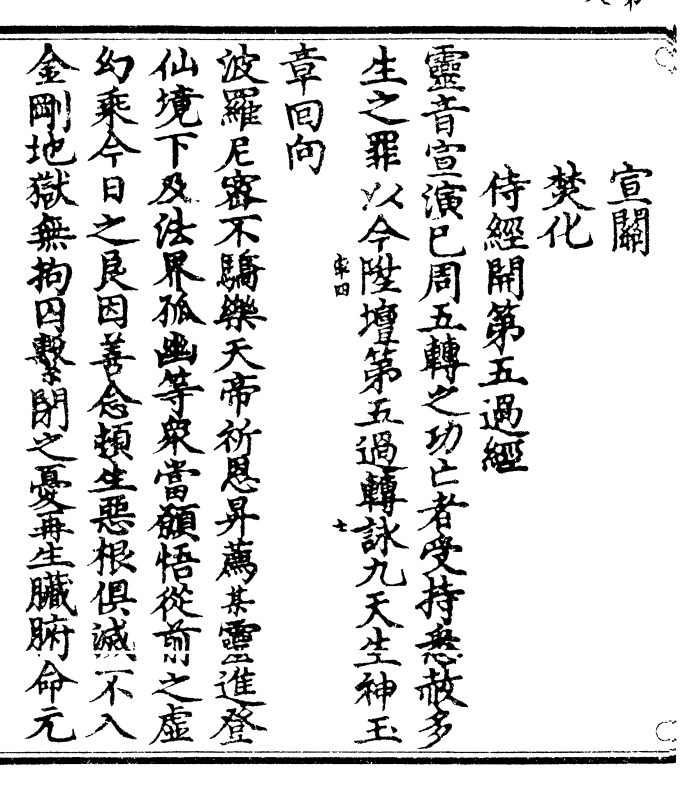 宣關
焚化
侍經開第五過經
靈音宣演已周五轉之功亡者受持悉赦多
生之罪以今陞壇第五過轉詠九天生神玉
章回向
波羅尼密不驕樂天帝祈恩昇薦某靈進登
仙境下及法界孤幽等衆當願悟從前之虛
幻乘今日之良因善念頓生惡根俱滅一不入
金剛地獄無拘囚繫閉之憂再生臟腑命元